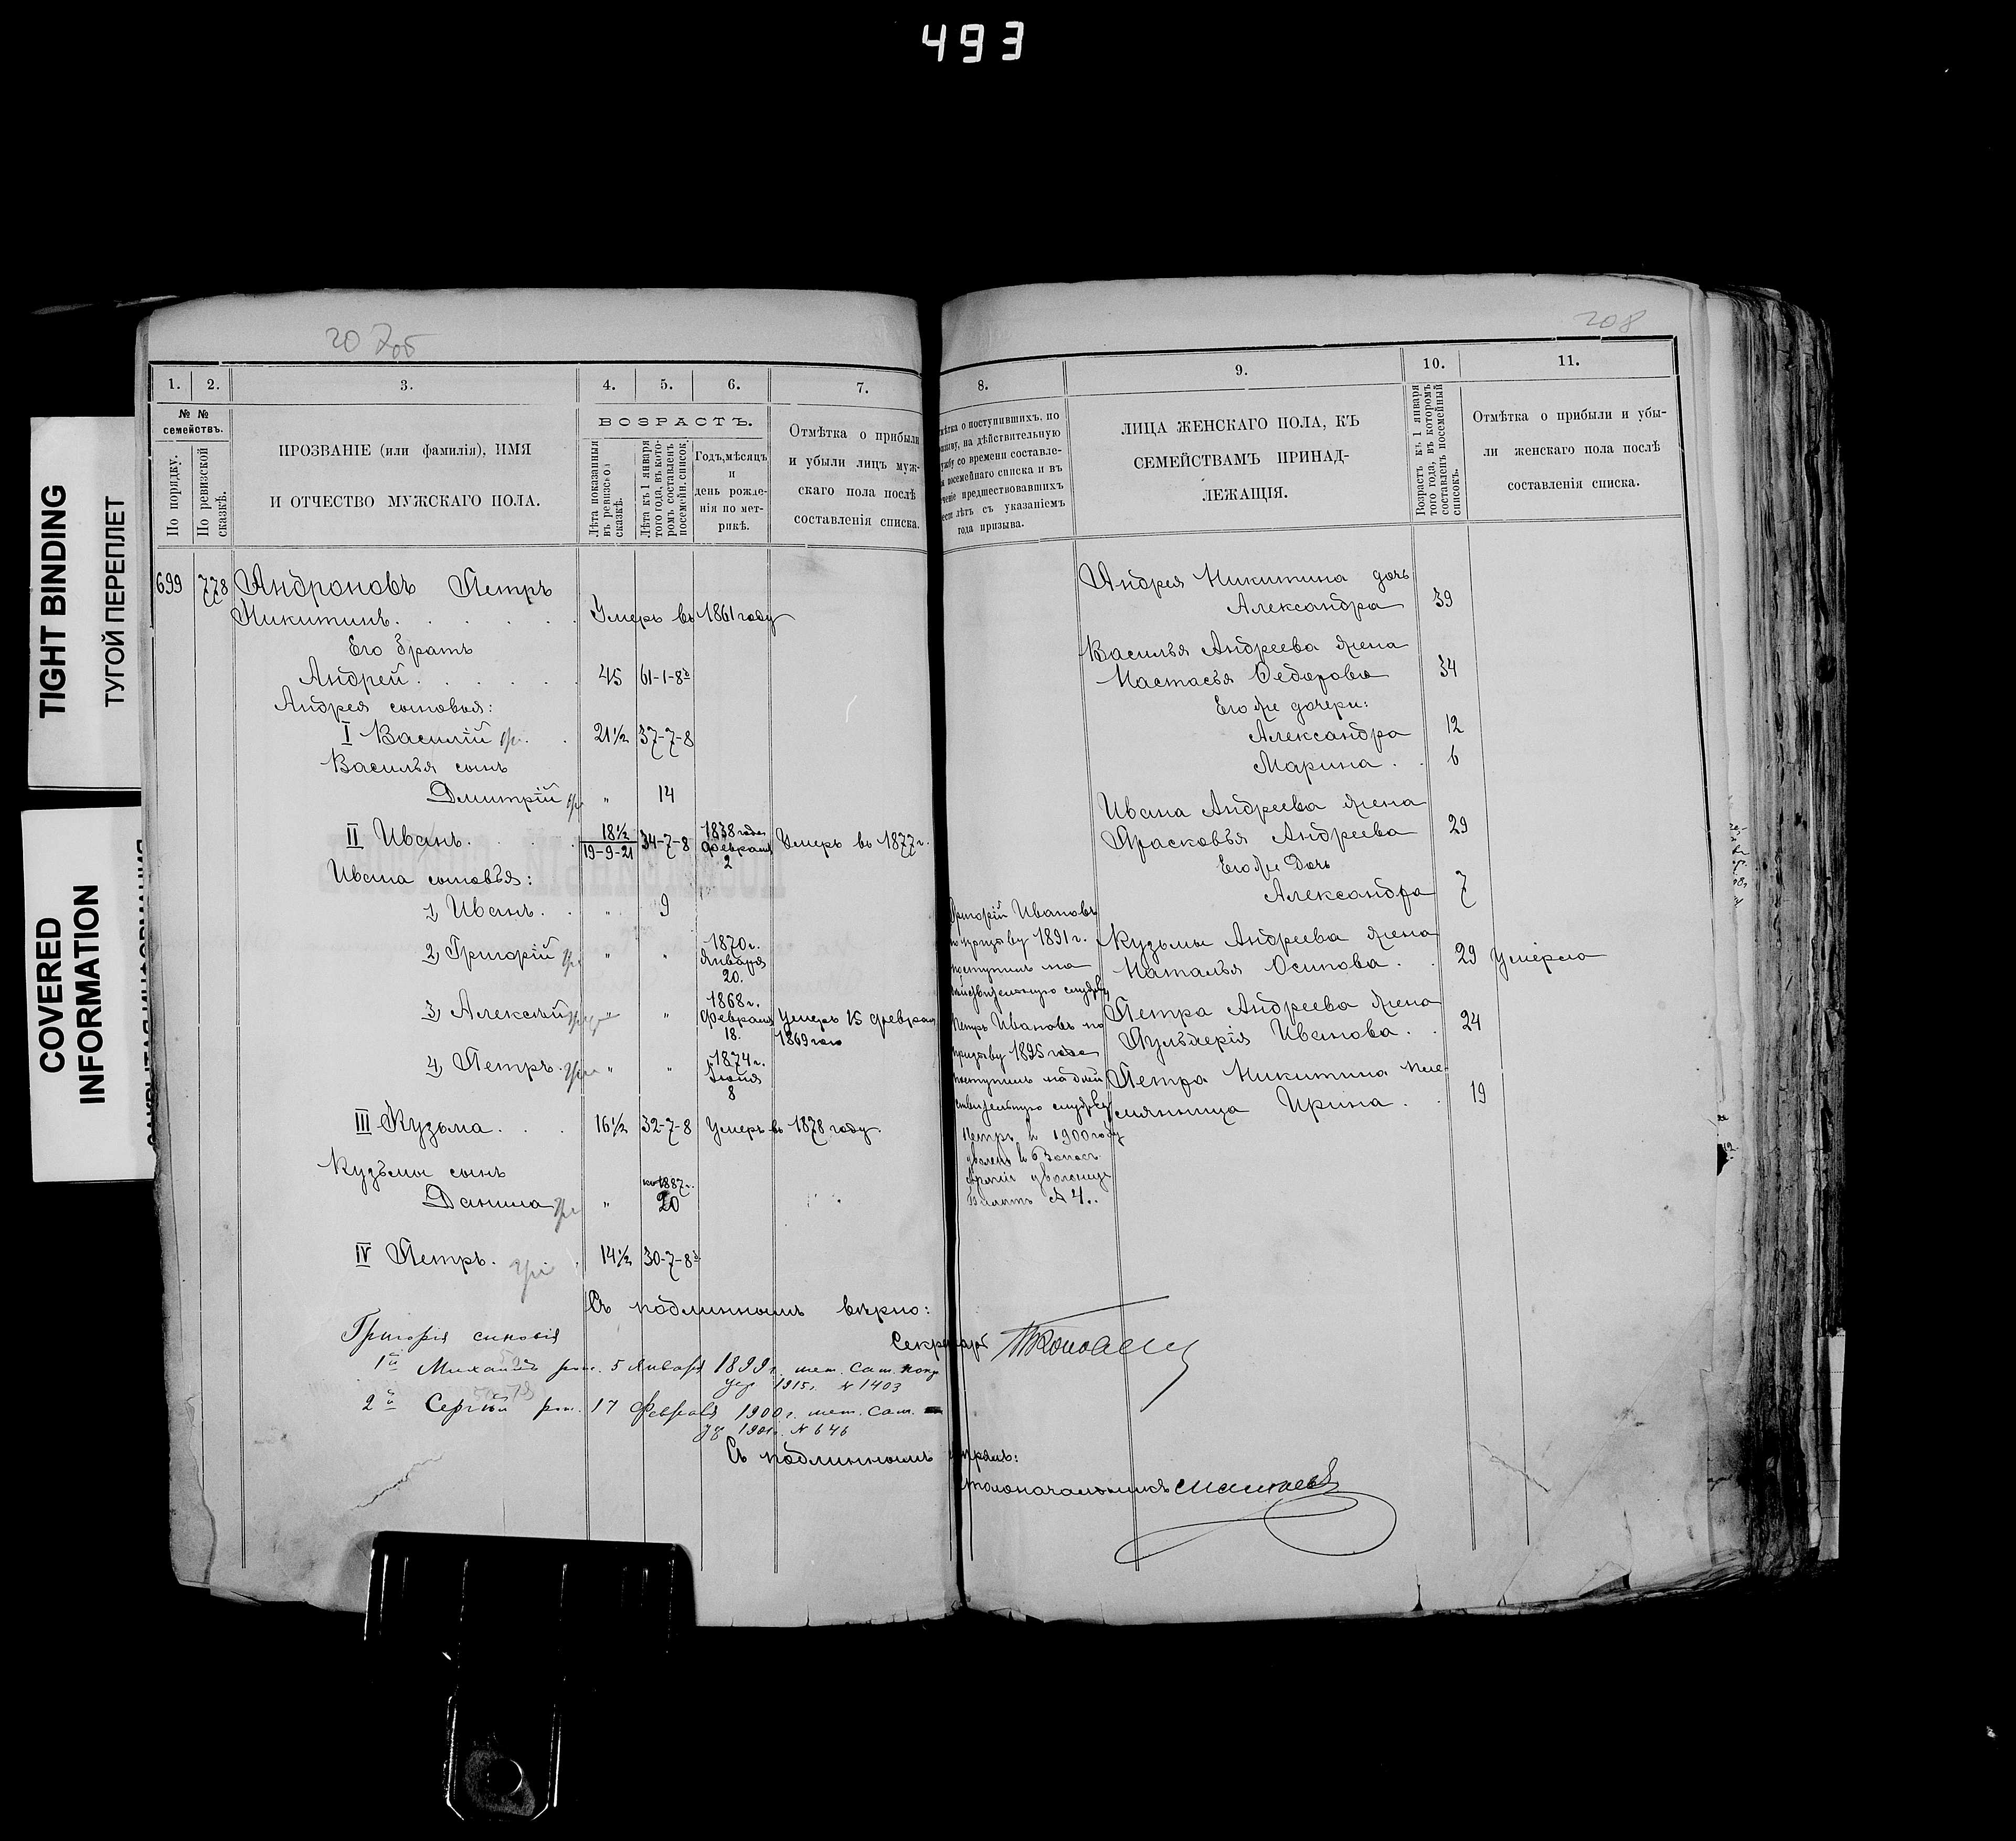 493
TIGHT BINDING
ТУГОЙ ПЕРЕПЛЕТ
COVERED
INFORMATION
20 7об
208
1.
2.
3.
4.
5.
6.
7.
№ №
семействъ.
По порядку.
По ревизской сказкѣ.
ПРОЗВАНІЕ (или фамилія), ИМЯ
И ОТЧЕСТВО МУЖСКАГО ПОЛА.
ВОЗРАСТЪ.
Лѣта показанныя
въ ревизской
сказкѣ.
Лѣта къ 1 января
того года, въ кото-
ромъ составленъ
посемейн. списокъ.
Годъ, мѣсяцъ
и
день рожде-
нія по мет-
рикѣ.
Отмѣтка о прибыли
и убыли лицъ муж-
скаго пола послѣ
составленія списка.
699 778 Андроновъ Петръ
Никитинъ. Умеръ въ 1861 году
Его братъ
Андрей 45 61-1-8
Андрея сыновья:
I Василій 21½ 37-7-8
Василья сынъ
Дмитрій " 14
II Иванъ. 18½ 19-9-21 34-7-8 1838 года Февраля 2 Умеръ въ 1877 г.
Ивана сыновья:
1, Иванъ. " 9
2, Григорій " " 1870 г. Января 20.
3, Алексѣй " " 1868 г. Февраля 18. Умеръ 15 февраля 1869 года
4, Петръ. " " 1874 г. Іюня 8
III Кузьма. 16½ 32-7-8 Умеръ въ 1878 году.
Кузьмы сынъ
Данила " 1887 г. 20
IV Петръ. 14½ 30-7-8
Съ подлиннымъ вѣрно:
Секретарь
Григорія сыновья
1й Михаилъ род. 5 Января 1899 г. мет.
1915 г. № 1403
2й Сергѣй род. 17 Февраля 1900 г. мет.
№ 646
Съ подлиннымъ
8.
9.
10.
11.
о поступившихъ, по
на дѣйствительную
со времени составле-
посемейнаго списка и въ
предшествовавшихъ
лѣтъ съ указаніемъ
года призыва.
ЛИЦА ЖЕНСКАГО ПОЛА, КЪ
СЕМЕЙСТВАМЪ ПРИНАД-
ЛЕЖАЩІЯ.
Возрастъ къ 1 января
того года, въ которомъ
составленъ посемейный
списокъ.
Отмѣтка о прибыли и убы-
ли женскаго пола послѣ
составленія списка.
Андрея Никитина дочь
Александра 39
Василья Андреева жена
Настасья Федорова 34
Его же дочери:
Александра 12
Марина 6
Ивана Андреева жена
Прасковья Андреева 29
Его же Дочь
Александра 7
Кузьмы Андреева жена
Наталья Осипова. 29 Умерла
Петра Андреева жена
Пульхерія Иванова. 24
Петра Никитина пле-
мянница Ирина. 19
Григорій Ивановъ
по призыву 1891 г.
поступилъ на
дѣйствительную службу
Петръ Ивановъ по
призыву 1895 года
поступилъ на дѣй
ствительную службу
Петръ въ 1900 году
Столоначальникъ